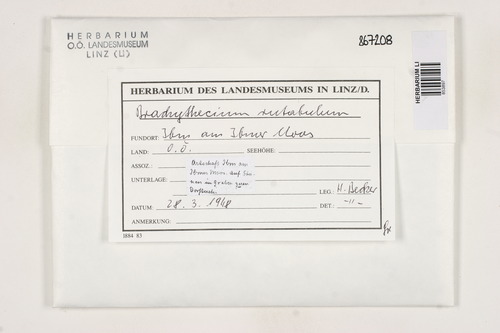 HERBARIUM
O.Ö. LANDESMUSEUM
LINZ (LI)
867208
HERBARIUM LI
HERBARIUM DES LANDESMUSEUMS IN LINZ/D.
Brachythecium rutabulum
FUNDORT: Ibm am Ibmer Moos
LAND: O.Ö. SEEHÖHE:
ASSOZ.:
Ortschaft Ibm am
Ibmer Moos. auf
UNTERLAGE:
LEG.: H.
DATUM: 28.3.1968
DET.: -"-
ANMERKUNG:
1884 83